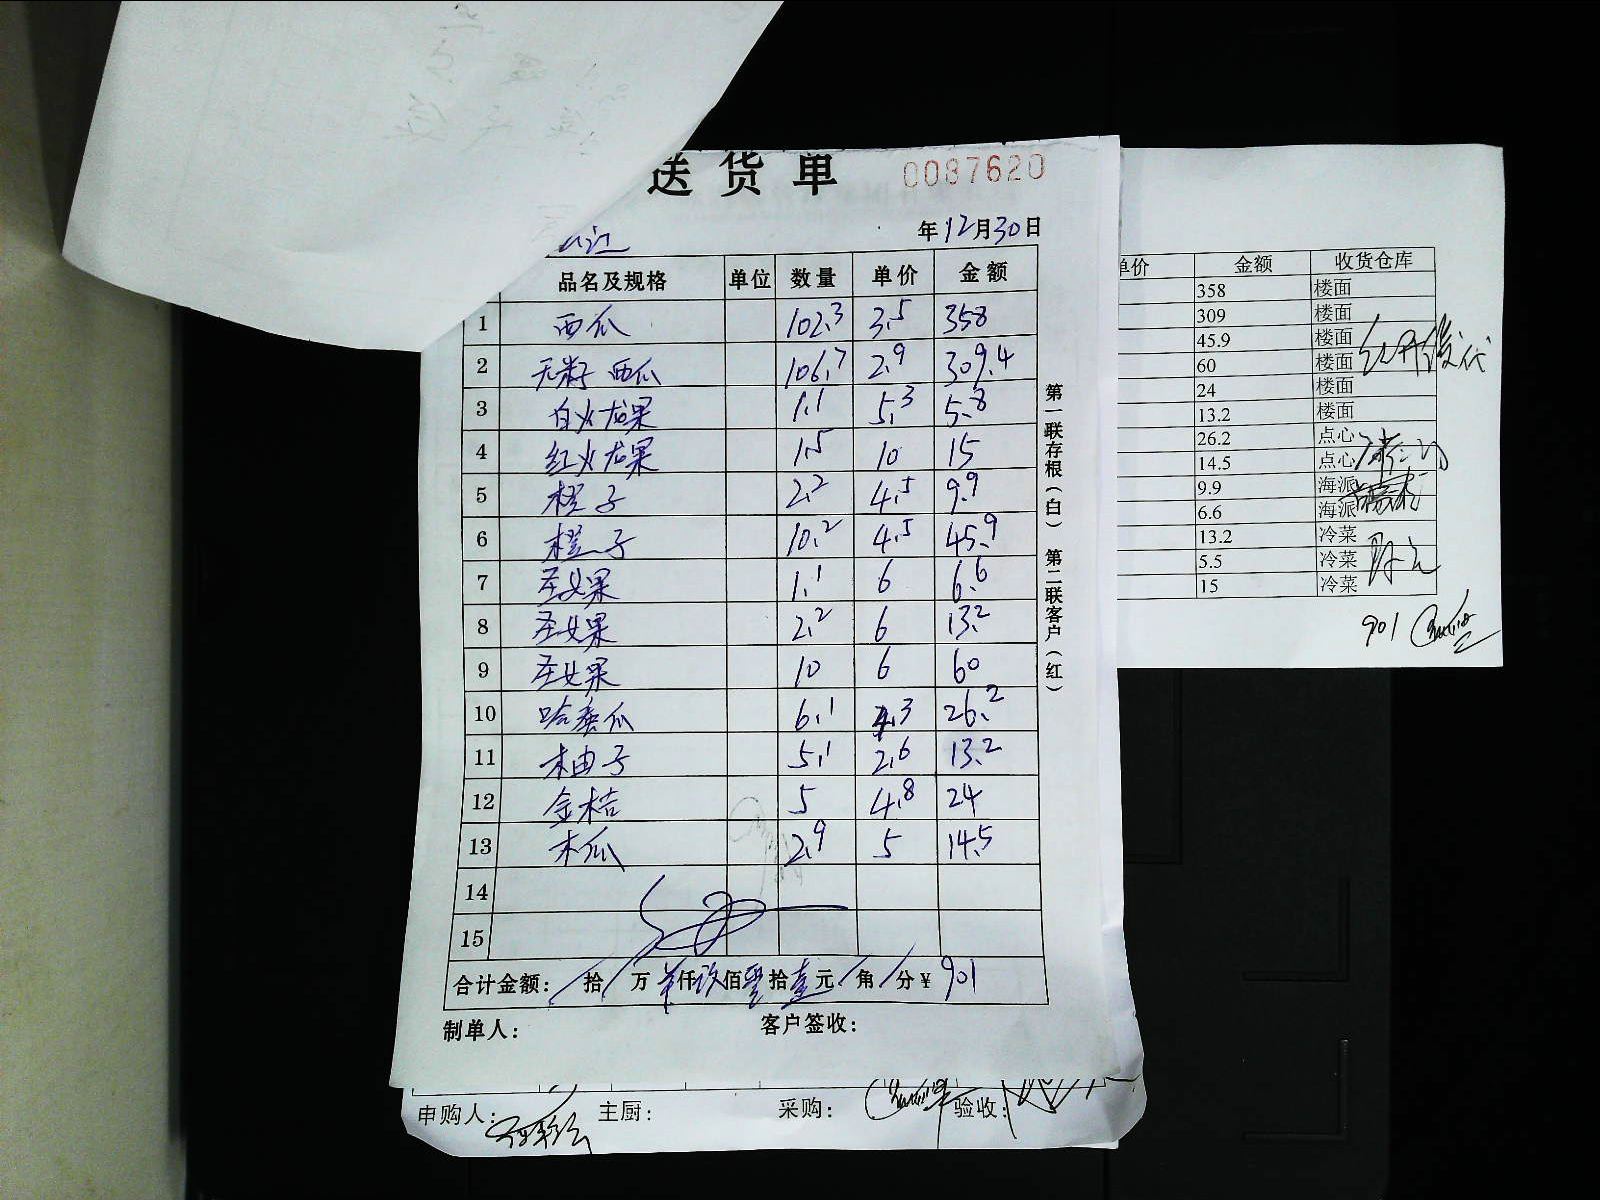 送货单 0087620
年12月30日
品名及规格 单位 数量 单价 金额
1 西瓜 102.3 3.5 358
2 无籽西瓜 106.7 2.9 309.4
3 白火龙果 1.1 5.3 5.8
4 红火龙果 1.5 10 15
5 橙子 2.2 4.5 9.9
6 橙子 10.2 4.5 45.9
7 圣女果 1.1 6 6.6
8 圣女果 2.2 6 13.2
9 圣女果 10 6 60
10 哈密瓜 6.1 4.3 26.2
11 柚子 5.1 2.6 13.2
12 金桔 5 4.8 24
13 木瓜 2.9 5 14.5
14
15
合计金额: 拾 万 仟玖佰零拾壹元 角 分¥ 901
制单人: 客户签收:
第一联存根(白) 第二联客户(红)
申购人: 主厨: 采购: 验收:
单价 金额 收货仓库
358 楼面
309 楼面
45.9 楼面
60 楼面
24 楼面
13.2 楼面
26.2 点心
14.5 点心
9.9 海派
6.6 海派
13.2 冷菜
5.5 冷菜
15 冷菜
901